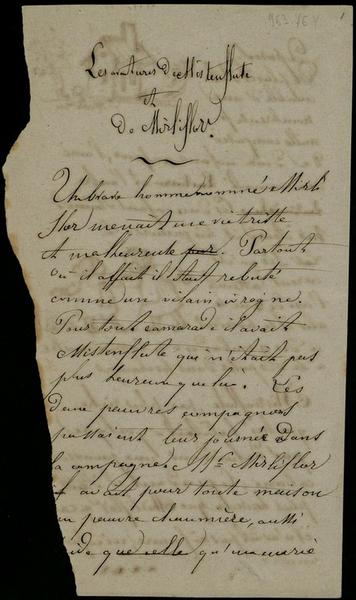 Les avatures de Mistenflute
et
de Mirliflor.
Un brave homme nommé Mirli
flor menait une vie triste
et malheureuse par. Partout
où il allait il était rebuté
comme un vilain ivrogne.
Pour tout camarade il avait
Mistenflute qui n'était pas
plus heureux que lui. Ces
deux pauvres compagnons
passaient leur journée dans
la campagne. Mr Mirliflor
avait pour toute maison
un pauvre chaumière, aussi
que celle qu'un marié